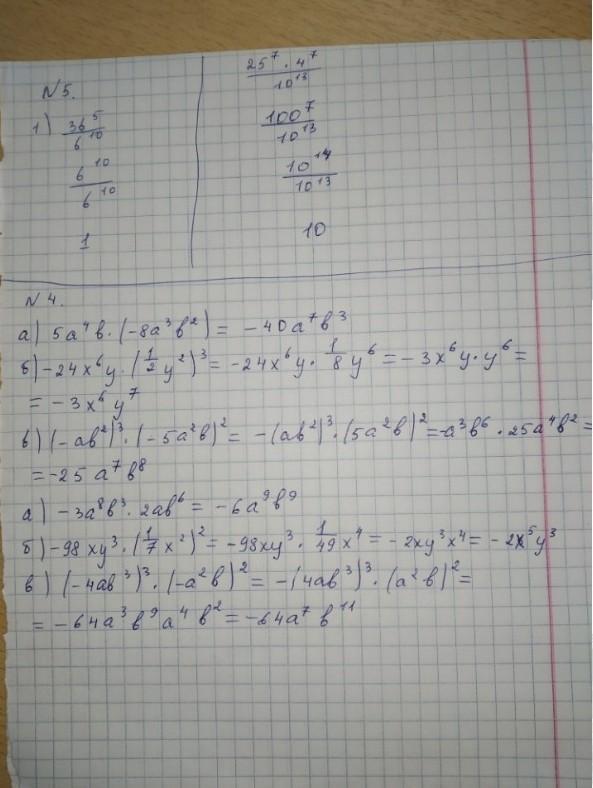 N 5.
1) 36⁵/6¹⁰
6¹⁰/6¹⁰
1
25⁷ · 4⁷/10¹³
100⁷/10¹³
10¹⁴/10¹³
10
N 4.
а) 5a⁴b · (-8a³b²) = -40a⁷b³
б) -24x⁶y · (1/2 y²)³ = -24x⁶y · 1/8 y⁶ = -3x⁶y · y⁶ =
= -3x⁶y⁷
в) (-ab²)³ · (-5a²b)² = -(ab²)³ · (5a²b)² = -a³b⁶ · 25a⁴b² =
= -25 a⁷b⁸
а) -3a⁸b³ · 2ab⁶ = -6a⁹b⁹
б) -98xy³ · (1/7 x²)² = -98xy³ · 1/49 x⁴ = -2xy³x⁴ = -2x⁵y³
в) (-4ab³)³ · (-a²b)² = -(4ab³)³ · (a²b)² =
= -64a³b⁹a⁴b² = -64a⁷b¹¹